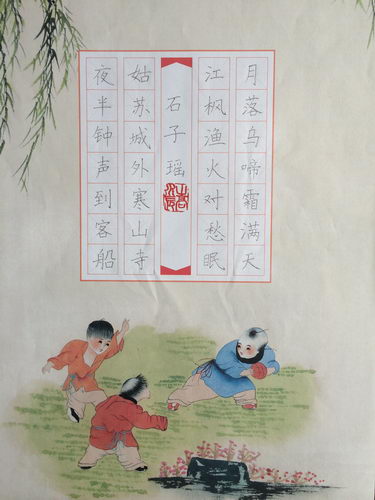 月落乌啼霜满天
江枫渔火对愁眠
石子瑶
姑苏城外寒山寺
夜半钟声到客船